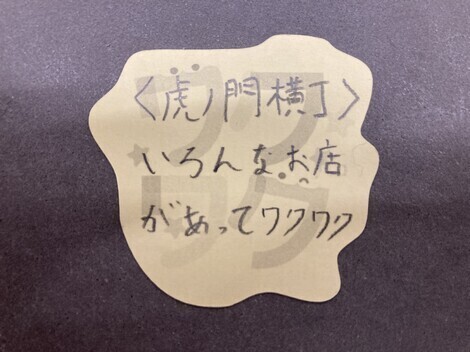 〈虎ノ門横丁〉
いろんなお店
があってワクワク